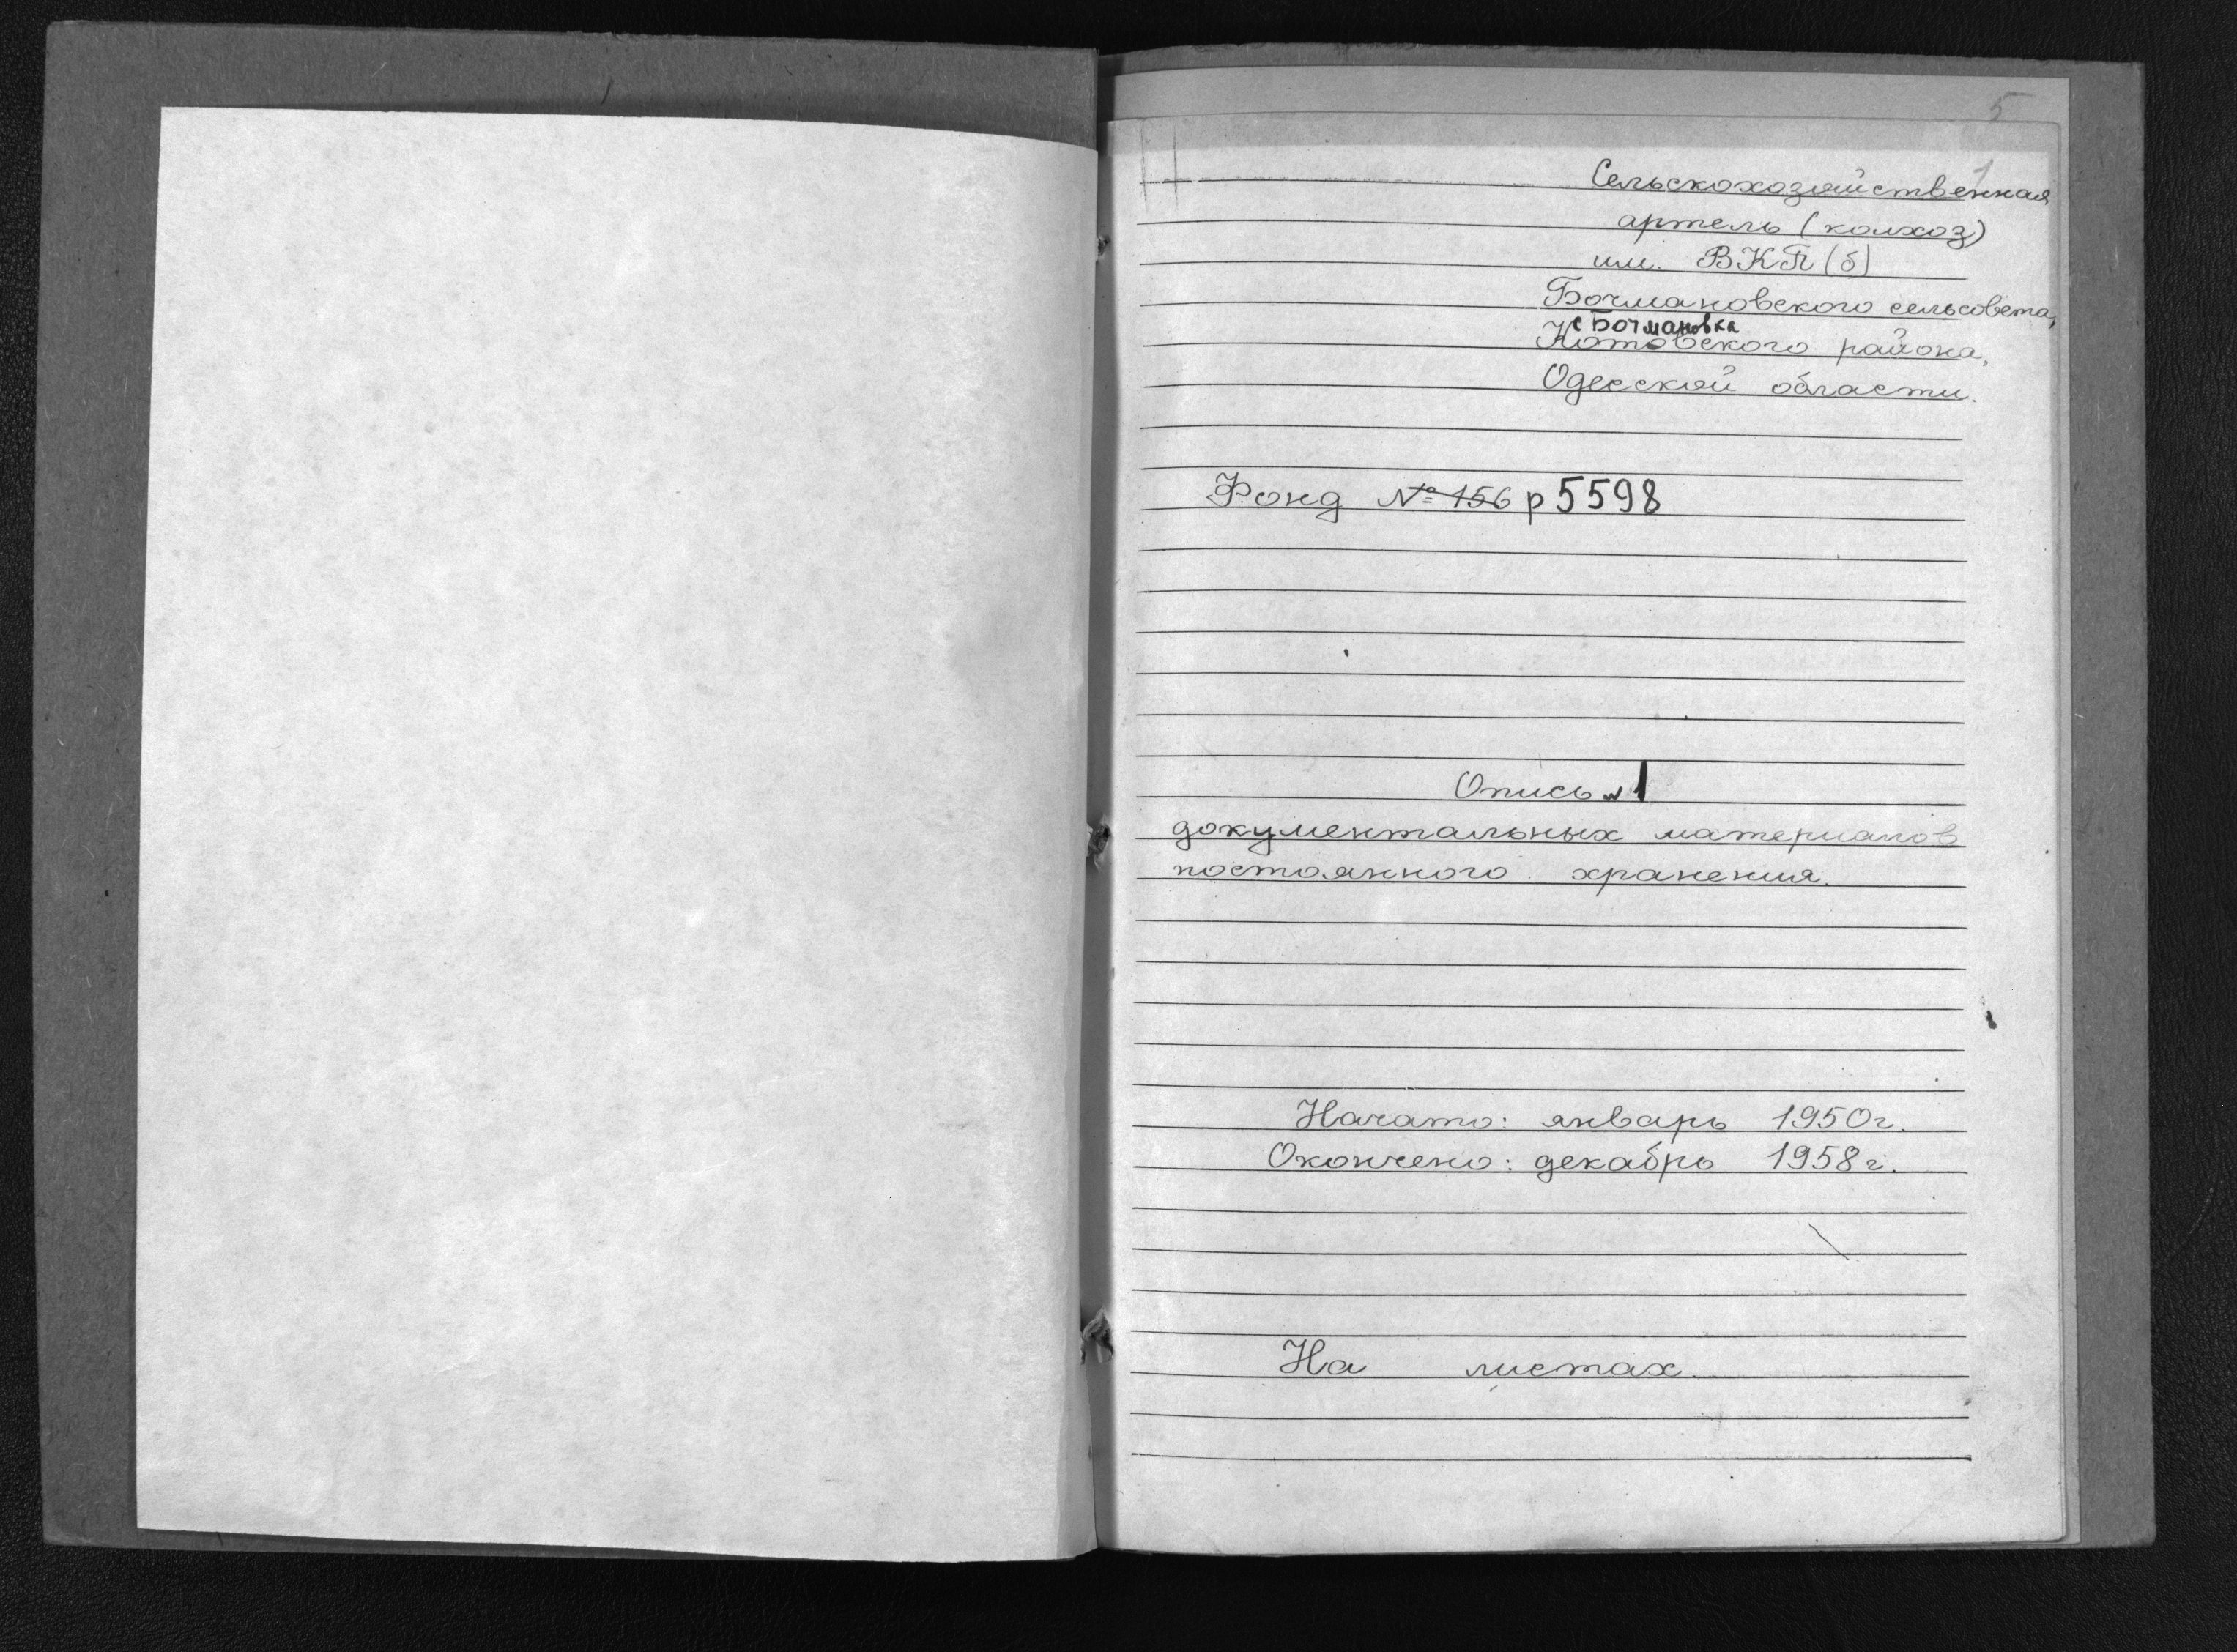 5
1
Сельскохозяйственная
артель (колхоз)
им. ВКП(б)
Бочмановского сельсовета,
с Бочмановка
Котовского района,
Одесской области.
Фонд № 156 р 5598
Опись № 1
документальных материалов
постоянного хранения.
Начато: январь 1950г.
Окончено: декабрь 1958г.
На листах.